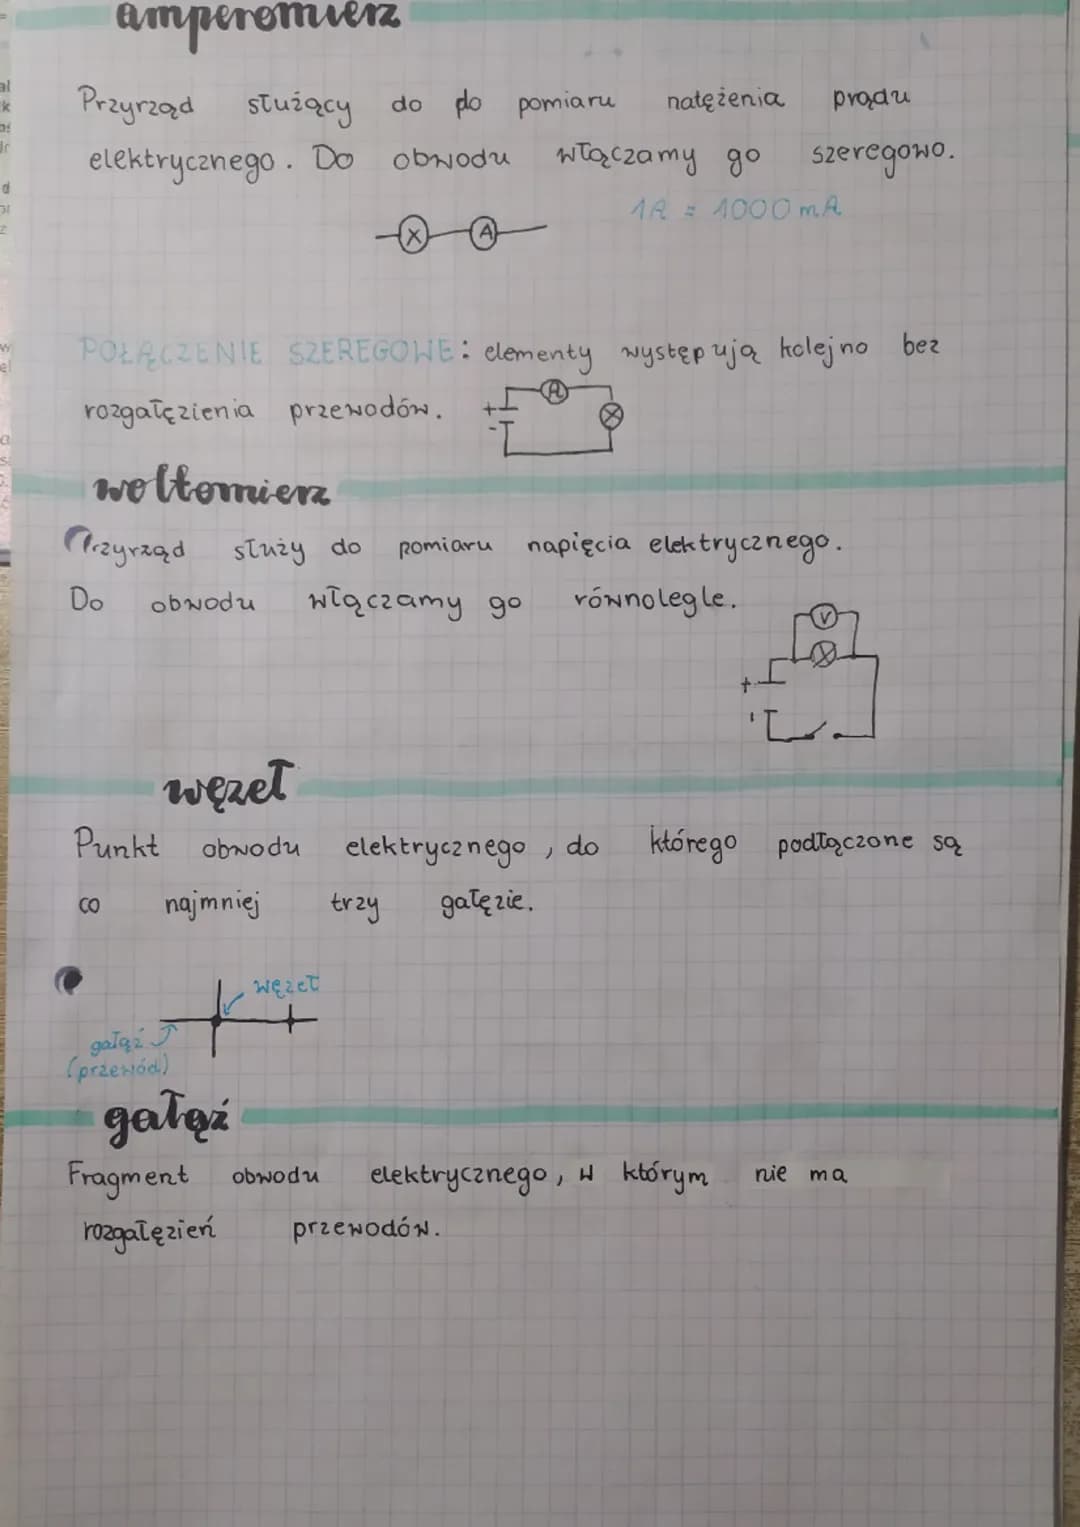 amperomierz
Przyrząd służący do do pomiaru natężenia prądu
elektrycznego. Do obwodu włączamy go szeregowo.
1A = 1000 mA
X A
POŁĄCZENIE SZEREGOWE: elementy występują kolejno bez
rozgałęzienia przewodów.
A
+
-
woltomierz
Przyrząd służy do pomiaru napięcia elektrycznego.
Do obwodu włączamy go równolegle.
V
+
węzeł
Punkt obwodu elektrycznego, do którego podłączone są
co najmniej trzy gałęzie.
węzeł
gałąź
(przewód)
gałąź
Fragment obwodu elektrycznego, w którym nie ma
rozgałęzień przewodów.